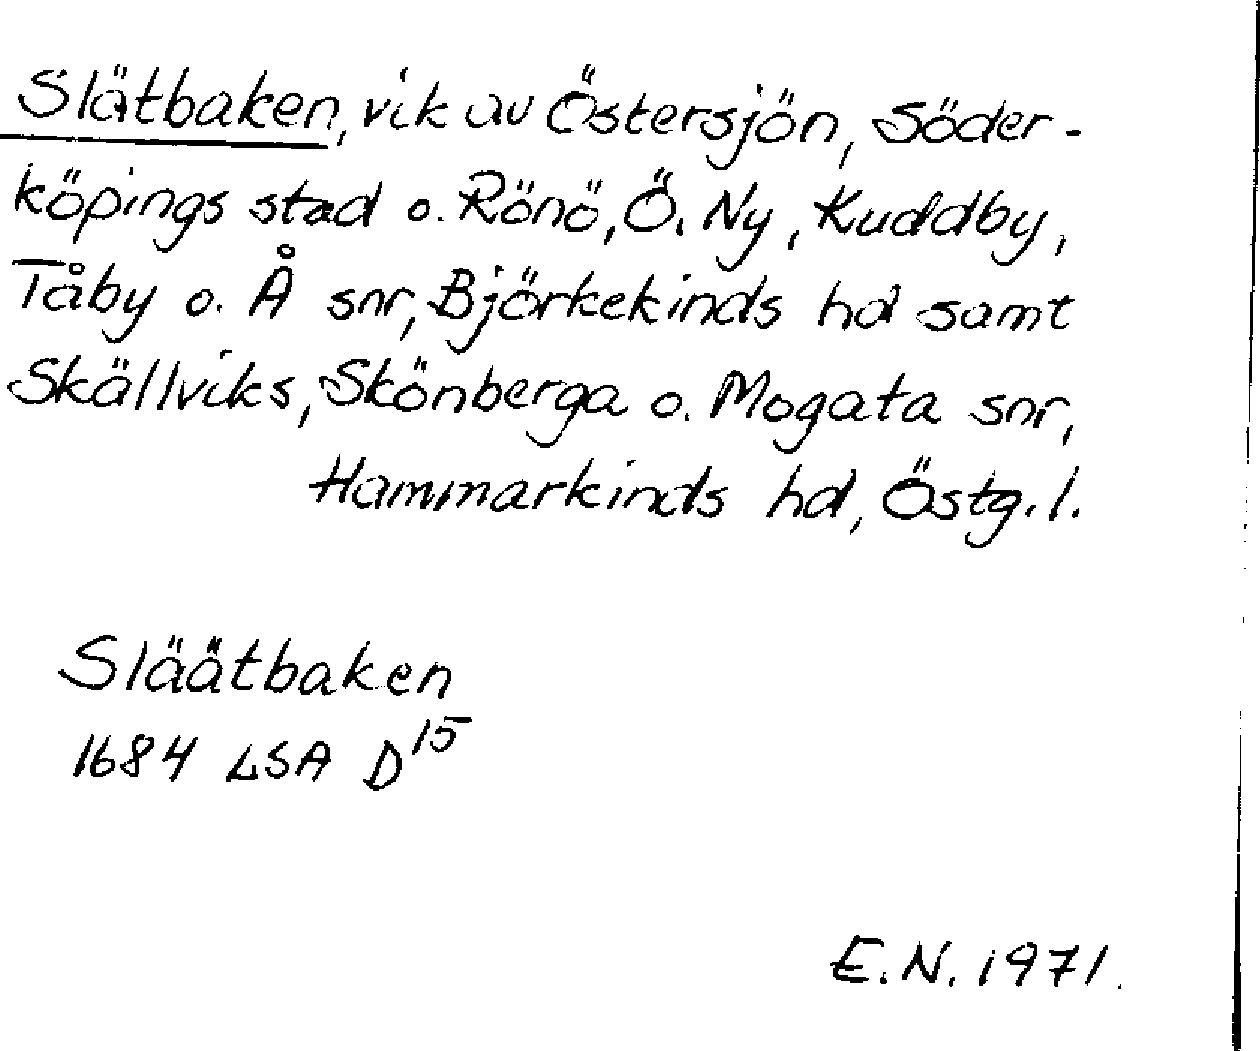 Slätbaken, vik av Östersjön, Söder-
köpings stad o. Rönö, Ö. Ny, Kuddby,
Tåby o. Å snr, Björkekinds hd samt
Skällviks, Skönberga o. Mogata snr,
Hammarkinds hd, Östg. l.
Släätbaken
1684 LSA D15
E.N. 1971.